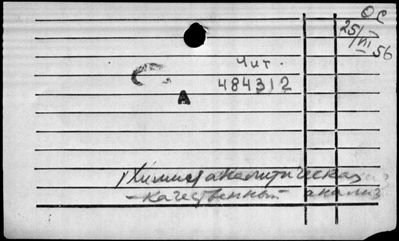 ОС
25/VII 56
Чит.
484312
А
Химия аналитическая
- качественный анализ